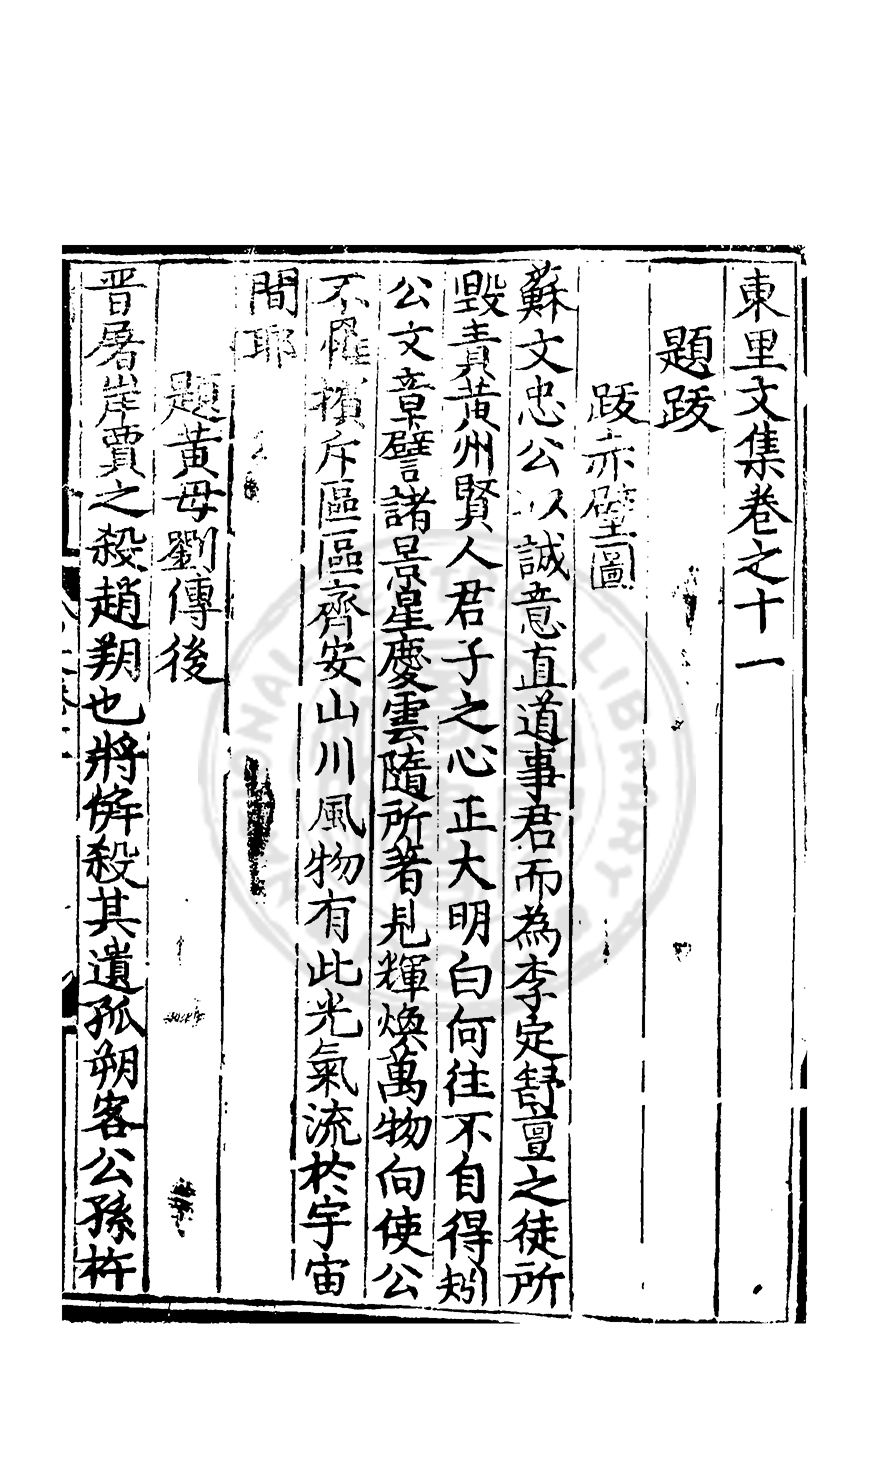 東里文集卷之十一
題跋
跋赤壁圖
蘇文忠公以誠意直道事君而為李定舒亶之徒所
毀責黃州賢人君子之心正大明白何往不自得矧
公文章譬諸景星慶雲隨所著見輝煥萬物向使公
不罹擯斥區區齊安山川風物有此光氣流於宇宙
間耶
題黃母劉傳後
晋屠岸賈之殺趙朔也將併殺其遺孤朔客公孫杵